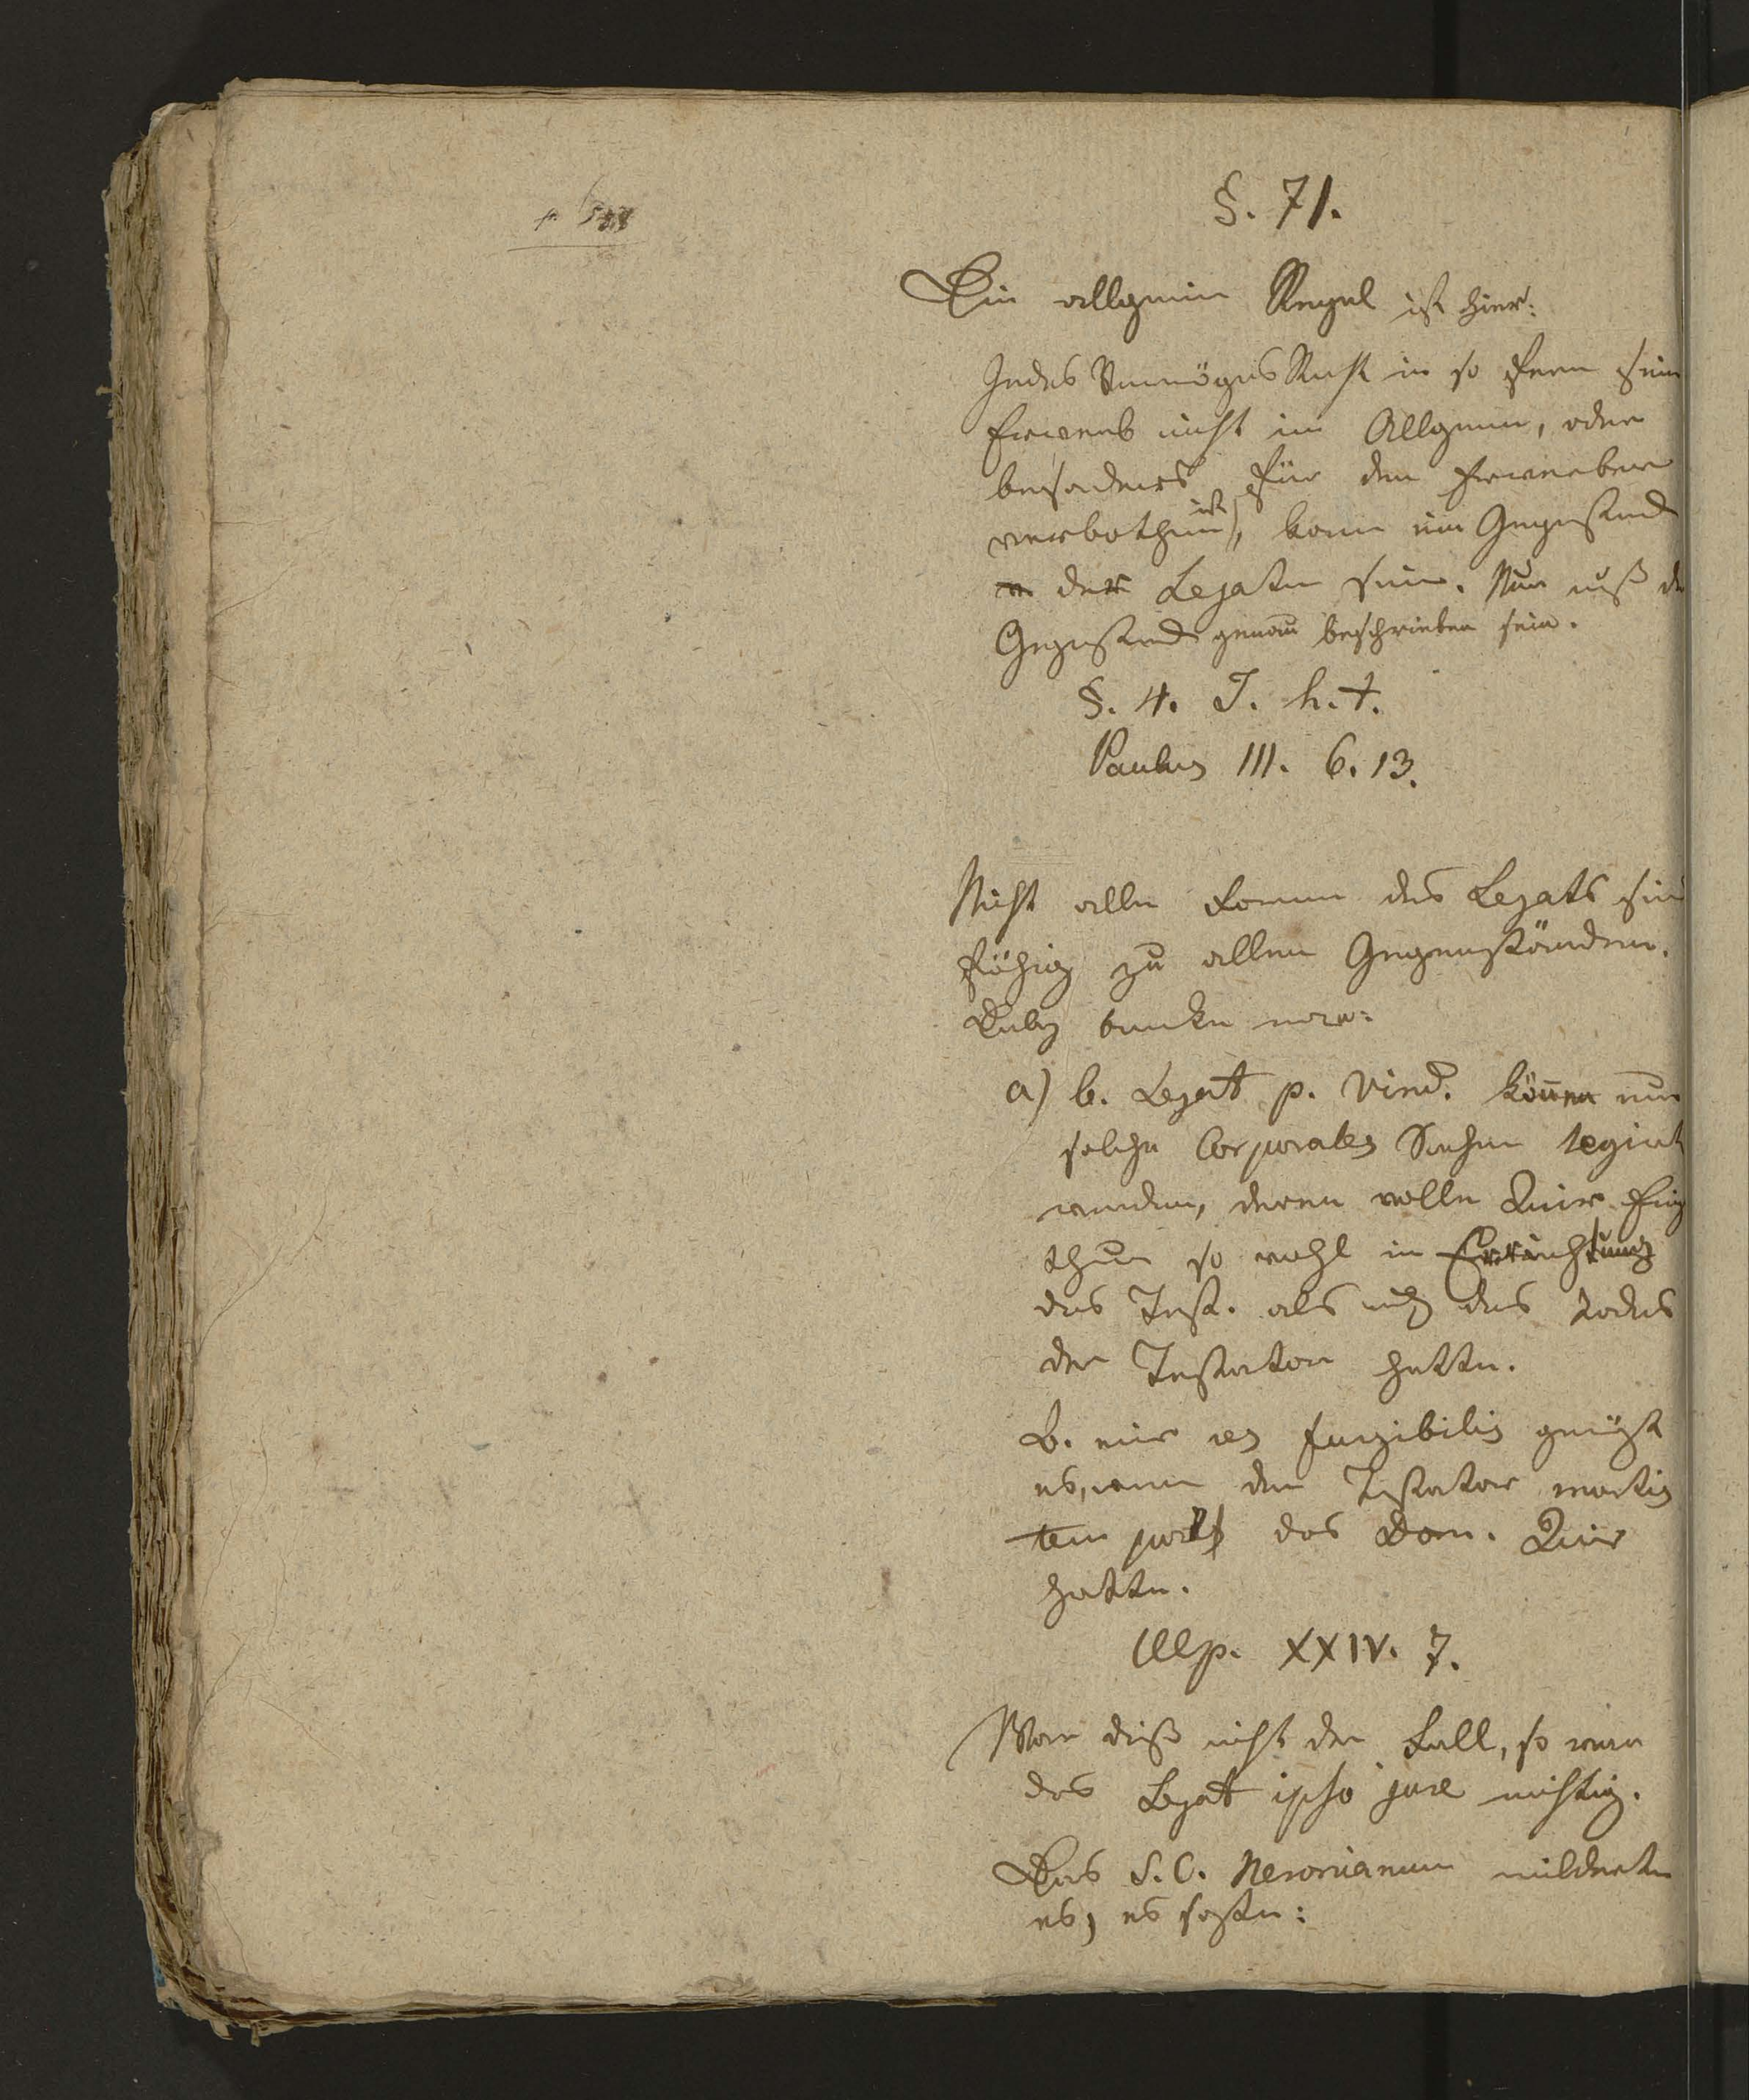 §. 71.
Die allgmein Regel ist hier:
Jedes Vermögens Recht in so fern sein
Erwerb nicht im Allgemein, oder
besonders für den Erwerber
verbothen ist, kann ein Gegenstand
der Legaten sein. Nur muß der
Gegenstand genau beschrieben sein.
§. 4. J. h. t.
Paulus III. 6. 13.
Nicht alle Formen des Legats sind
fähig zu allen Gegenständen.
a) b. Legat p. Vind. können nur
solche Corporales Sachen legirt
werden, deren volle Quir. Eig
thum so wohl in Errichtung
des Test. als auch des Todes
der Testator hatte.
B. einer res fungibilis genügt
es, wenn der Testator mortis
tempore das Dom. Quir
hatte.
Ulp. XXIV. 7.
War dieß nicht der Fall, so war
das Legat ipso jure nichtig.
Das S. C. Neronianum milderte
es, es sagte: